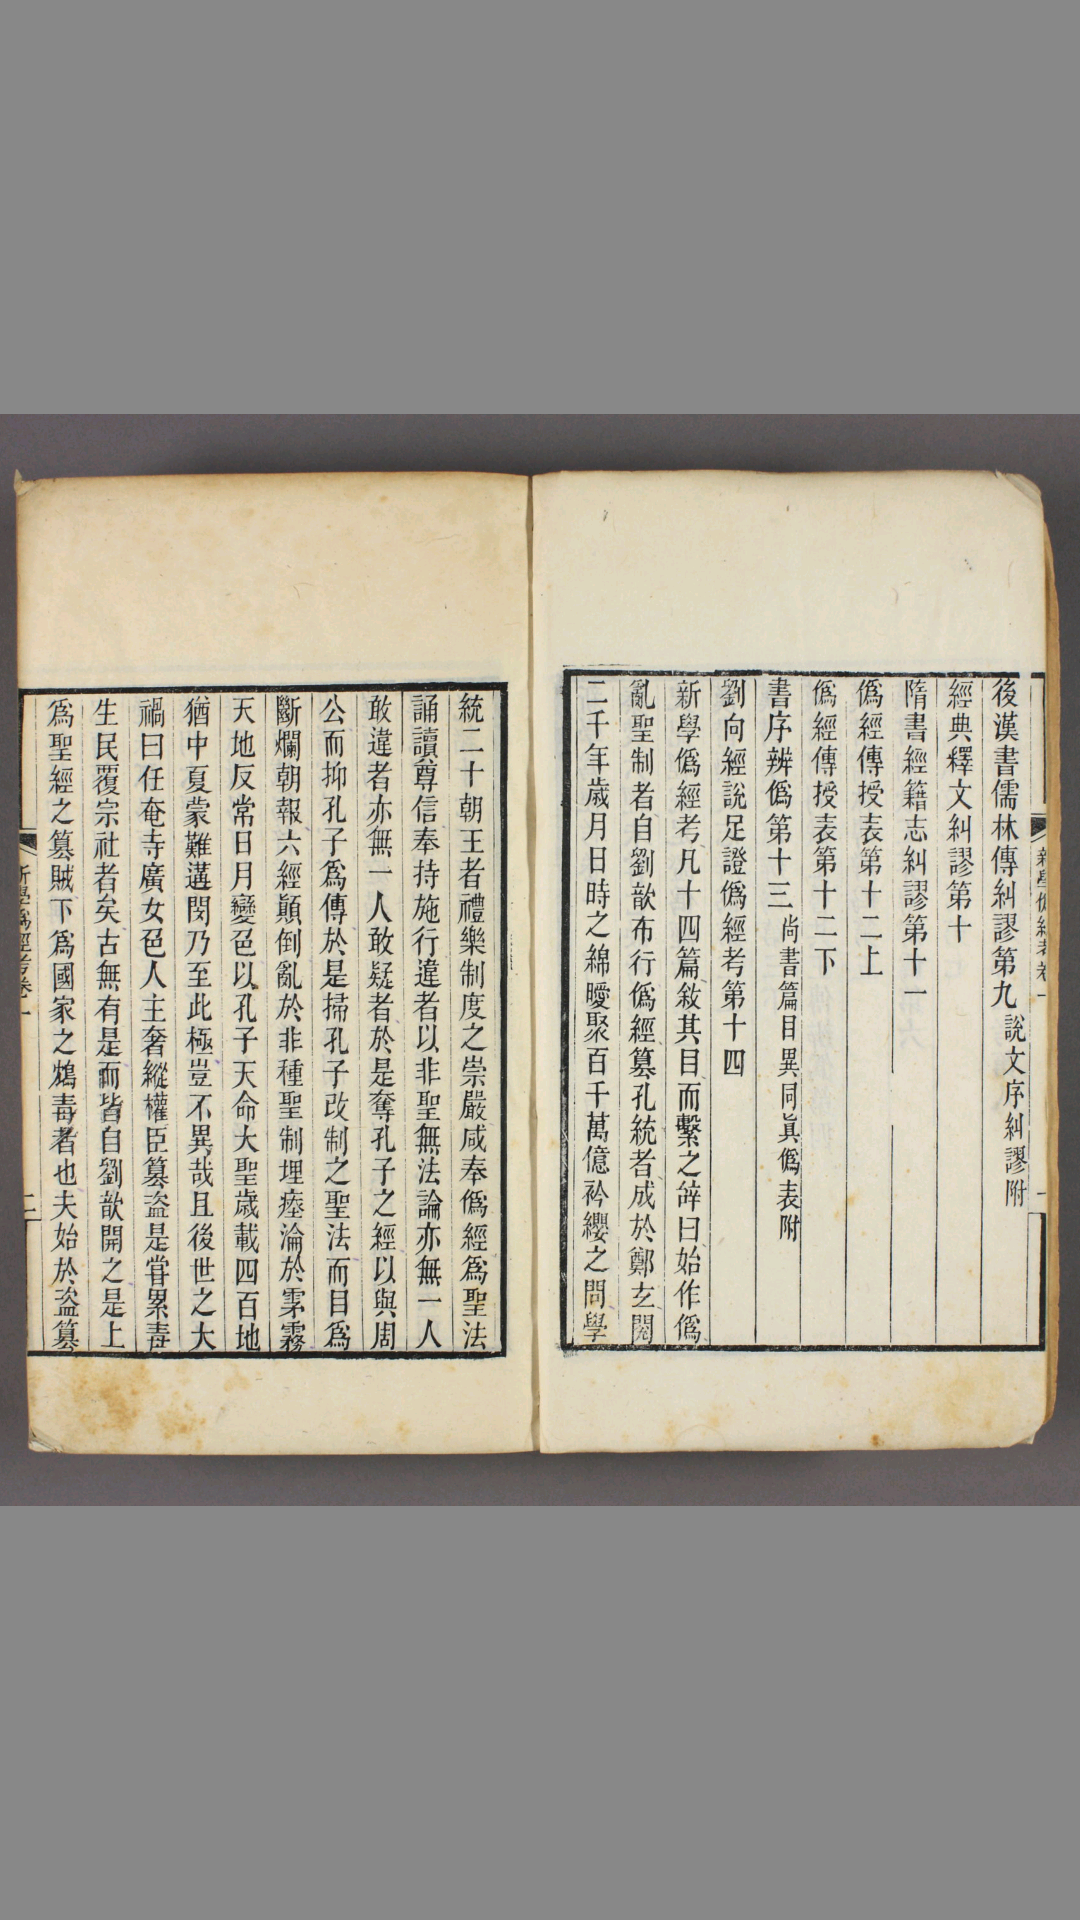 後漢書儒林傳糾謬第九說文序糾謬附
經典釋文糾謬第十
隋書經籍志糾謬第十一
僞經傳授表第十二上
僞經傳授表第十二下
書序辨僞第十三尚書篇目異同眞僞表附
劉向經說足證僞經考第十四
新學僞經考凡十四篇敘其目而繫之辭曰始作僞
亂聖制者自劉歆布行僞經篡孔統者成於鄭玄閱
二千年歲月日時之綿曖聚百千萬億衿纓之問學
統二十朝王者禮樂制度之崇嚴咸奉僞經爲聖法
誦讀尊信奉持施行違者以非聖無法論亦無一人
敢違者亦無一人敢疑者於是奪孔子之經以與周
公而抑孔子爲傳於是掃孔子改制之聖法而目爲
斷爛朝報六經顛倒亂於非種聖制埋瘞淪於雺霧
天地反常日月變色以孔子天命大聖歲載四百地
猶中夏蒙難遘閔乃至此極豈不異哉且後世之大
禍曰任奄寺廣女色人主奢縱權臣篡盜是嘗累毒
生民覆宗社者矣古無有是而皆自劉歆開之是上
爲聖經之篡賊下爲國家之鴆毒者也夫始於盜篡
新學僞經考卷一
二